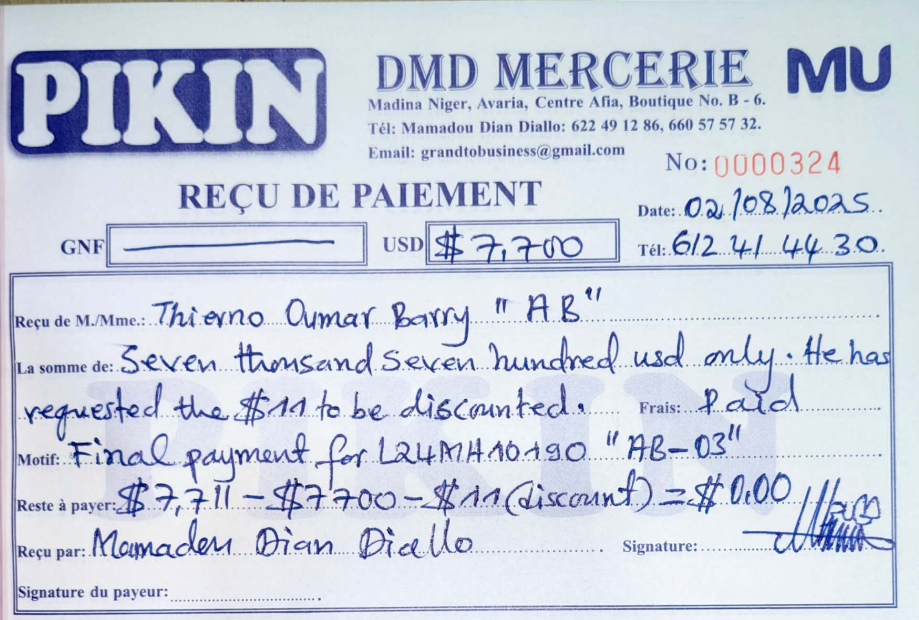 PIKIN
DMD MERCERIE
MU
Madina Niger, Avaria, Centre Afia, Boutique No. B - 6.
Tél: Mamadou Dian Diallo: 622 49 12 86, 660 57 57 32.
Email: grandtobusiness@gmail.com
No: 0000324
REÇU DE PAIEMENT
Date: 02/08/2025
GNF USD $7,700 Tél: 612 41 44 30
Reçu de M./Mme.: Thierno Oumar Barry "AB"
La somme de: Seven thousand seven hundred usd only. He has
requested the $11 to be discounted. Frais: Paid
Motif: Final payment for L24MH10190 "AB-03"
Reste à payer: $7,711 - $7700 - $11 (discount) = $0.00
Reçu par: Mamadou Dian Diallo Signature:
Signature du payeur:
PIKIN